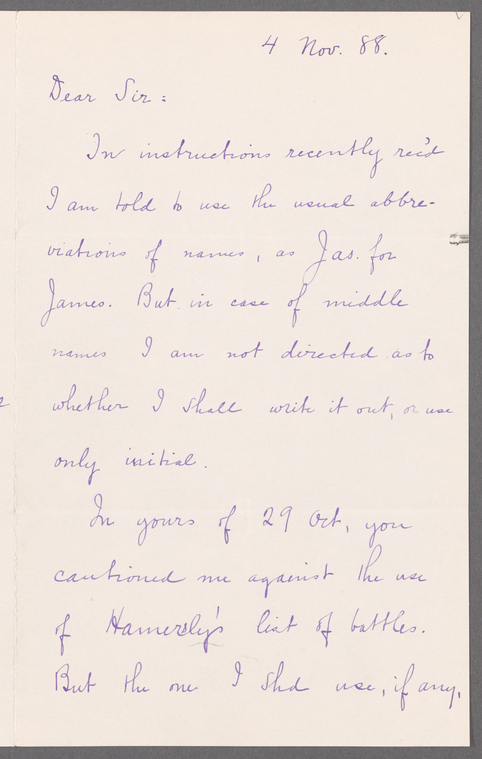 4 Nov. 88.
Dear Sir:
In instructions recently rec'd
I am told to use the usual abbre-
viations of names, as Jas. for
James. But in case of middle
names I am not directed as to
whether I shall write it out, or use
only initial.
In yours of 29 Oct, you
cautioned me against the use
of Hamerely's list of battles.
But the one I shd use, if any,